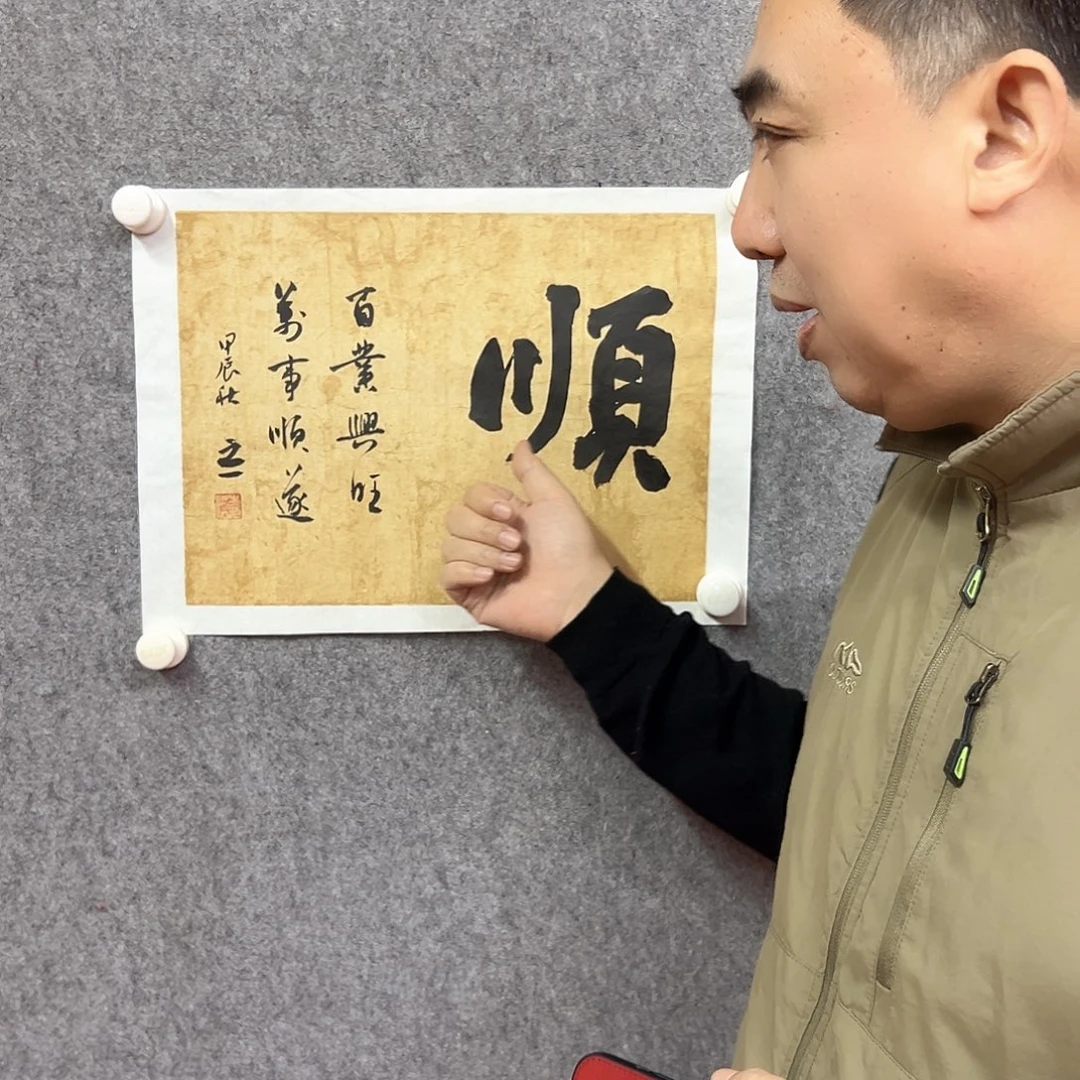 順
百業興旺
萬事順遂
甲辰秋